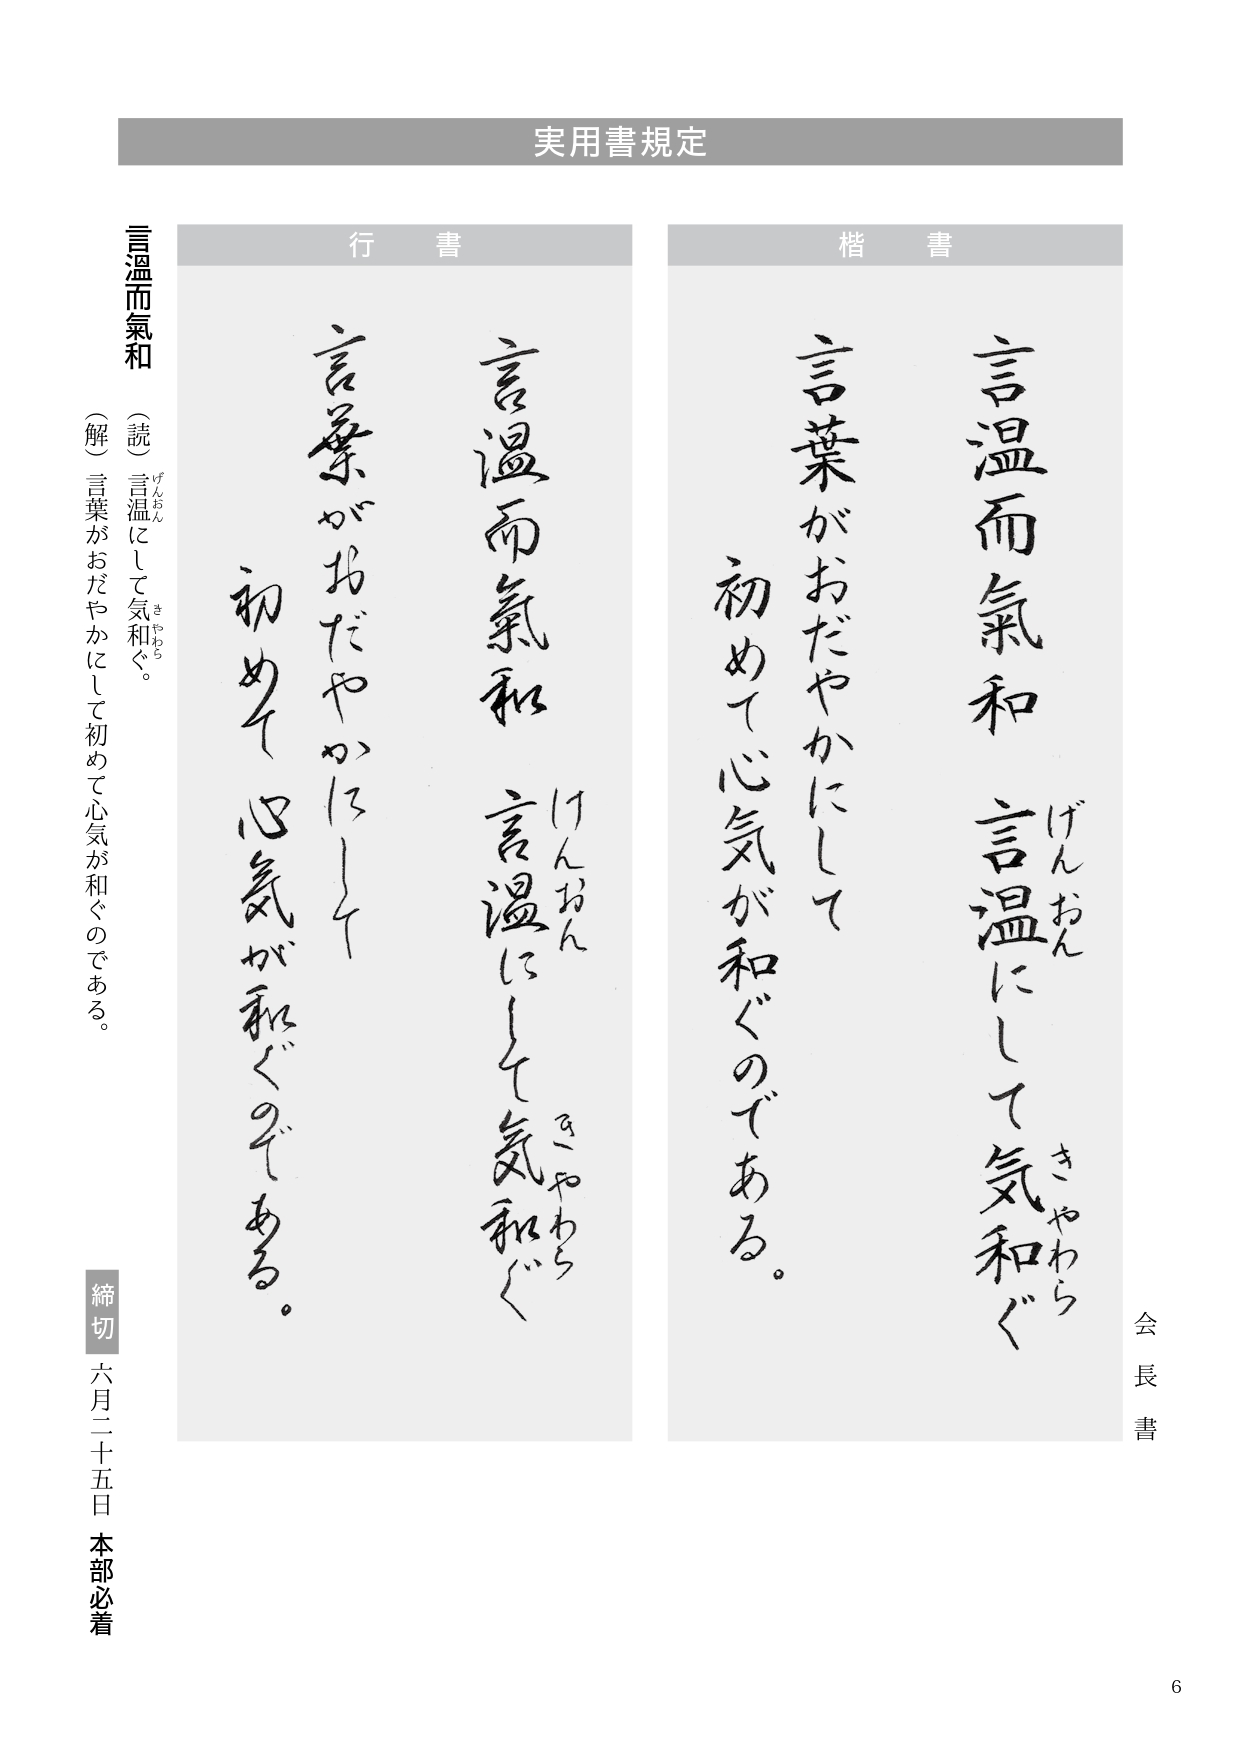 実用書規定
会長書
楷書
げんおん きやわら
言温而氣和 言温にして気和ぐ
言葉がおだやかにして
初めて心気が和ぐのである。
行書
けんおん きやわら
言温而氣和 言温にして気和ぐ
言葉がおだやかにして
初めて心気が和ぐのである。
げんおん きやわら
言溫而氣和 (読) 言温にして気和ぐ。
(解) 言葉がおだやかにして初めて心気が和ぐのである。
締切 六月二十五日 本部必着
6